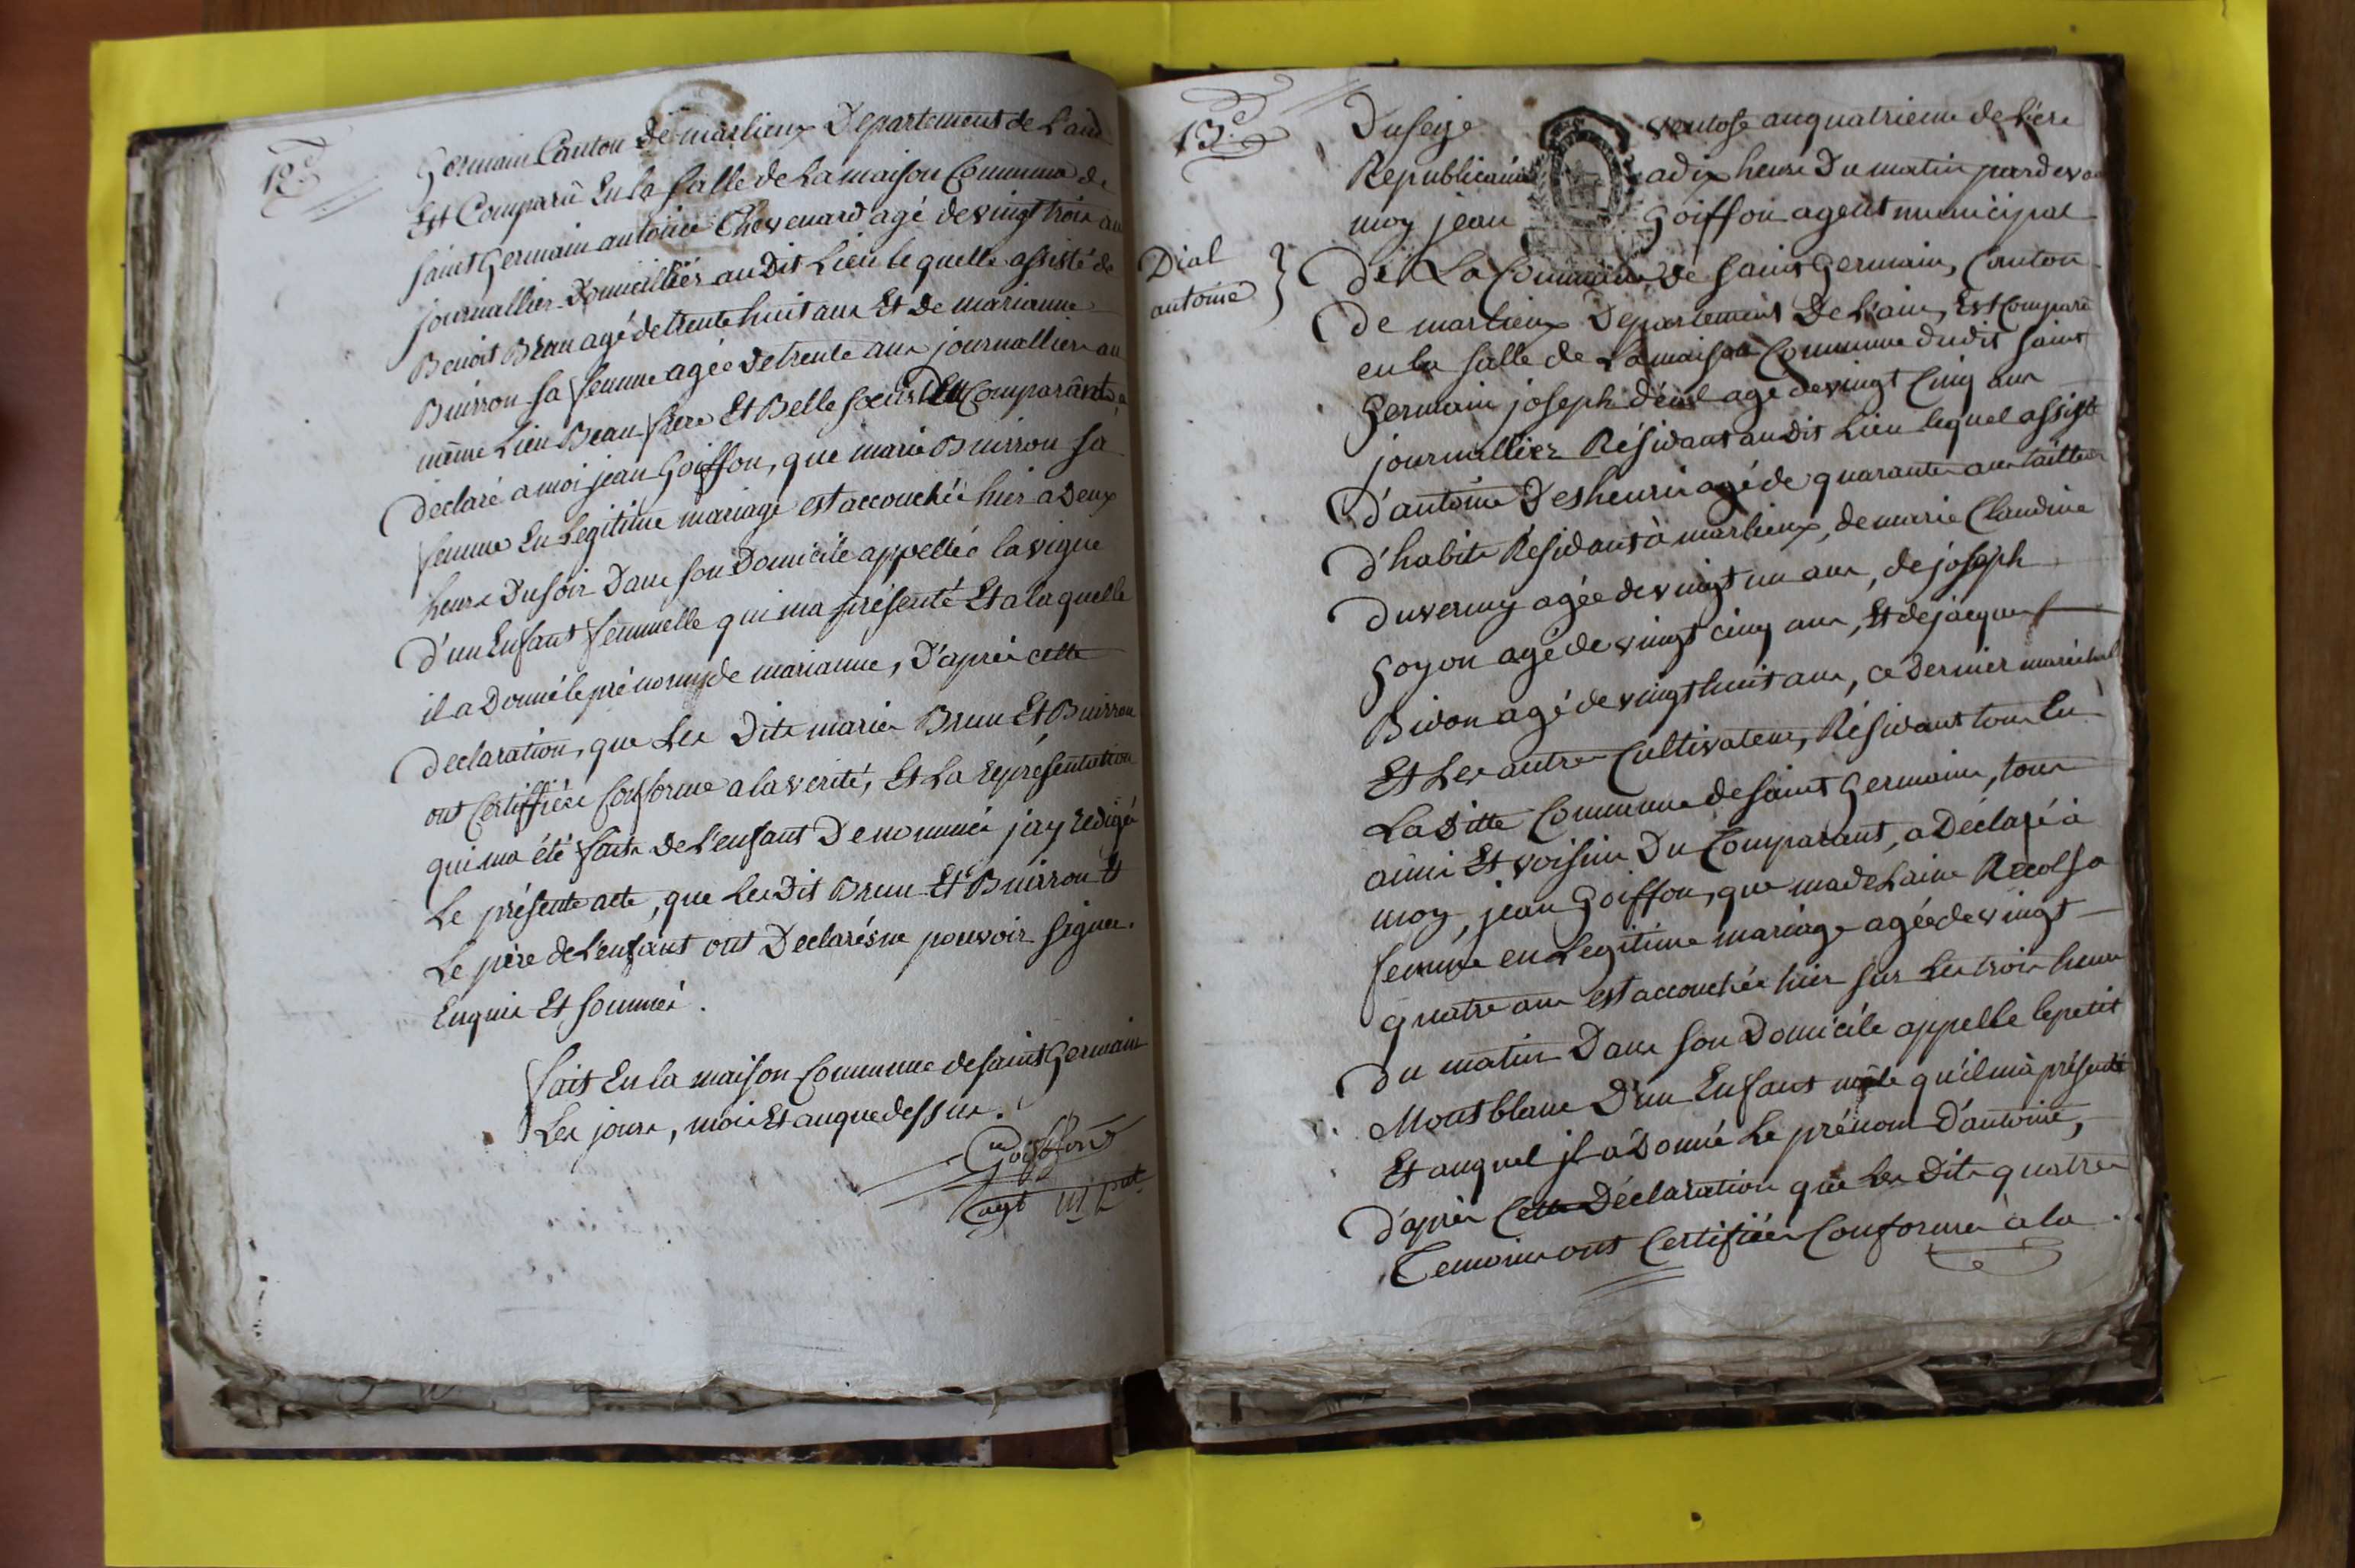 12.e
Germain Canton de marlieux Departement de Lain
Est Comparû En la salle de Lamaison Commune de
saint Germain antoine Chevenard agé de vingt trois an
journallier Domicilliér au Dit Lieu le quelle assisté de
Benoit Brun agé de trente huit ans Et De marianne
Buirron sa femme agée de trente ans journallier au
même Lieu Beau frere Et Belle soeur Comparant a
Declaré a moi jean Goiffon, que marie Buirron sa
femme En Legitime mariage est accouchée hier a Deux
heure Du soir Dans son Domicile appellée la vigne
D'un Enfant femmelle qui ma présenté Et a la quelle
il a Donné le prénom de marianne, D'après cette
Declaration, que Les Dits mariés Brun Et Buirron
ont Certiffiéer Conforme a la verité, Et La représentation
qui ma été faite de L'enfant Denommée jay redigé
Le présente acte, que Les Dit Brun Et Buirron Et
Le père de L'enfant ont Declarés ne pouvoir signer.
Enquis Et sommés.
fait En la maison Commune de saint Germain
Les jours, mois Et an que dessus.
Goiffon
agt mpal
13.e
Du seize ventose an quatrieme de L'ére
Republicaine a dix heure Du matin pardevan
moy jean Goiffon agent municipal
Dial
antoine
De La Commune de saint Germain, Canton
de marlieux Departement De L'ain, Est Comparû
en la salle de La maison Commune dudit saint
Germain joseph déal agé de vingt Cinq ans
journallier Résidant au dit Lieu lequel assisté
D'antoine Desheurie agé de quarante ans tailleur
D'habits Résidant à marlieux, de marie Claudine
Duverney agée de vingt un ans, de joseph
Goyon agé de vingt cinq ans, Et de jacques
Bidon agé de vingt huit ans, ce Dernier maréchal
Et Les autres Cultivateurs, Résidant tous En
La ditte Commune de saint Germain, tous
amis Et voisins Du Comparant, a Déclaré à
moy, jean Goiffon, que madelaine Recol sa
femme en Legitime mariage agée de vingt
quatre ans est accouchée hier sur Les trois heure
Du matin Dans son Domicile appelle le petit
Montblanc D'un Enfant mâle qu'il m'a présenté
Et auquel il a Donné Le prénom D'antoine,
D'après Cette Déclaration que Les Dits quatres
Temoins ont Certifiéer Conforme à la